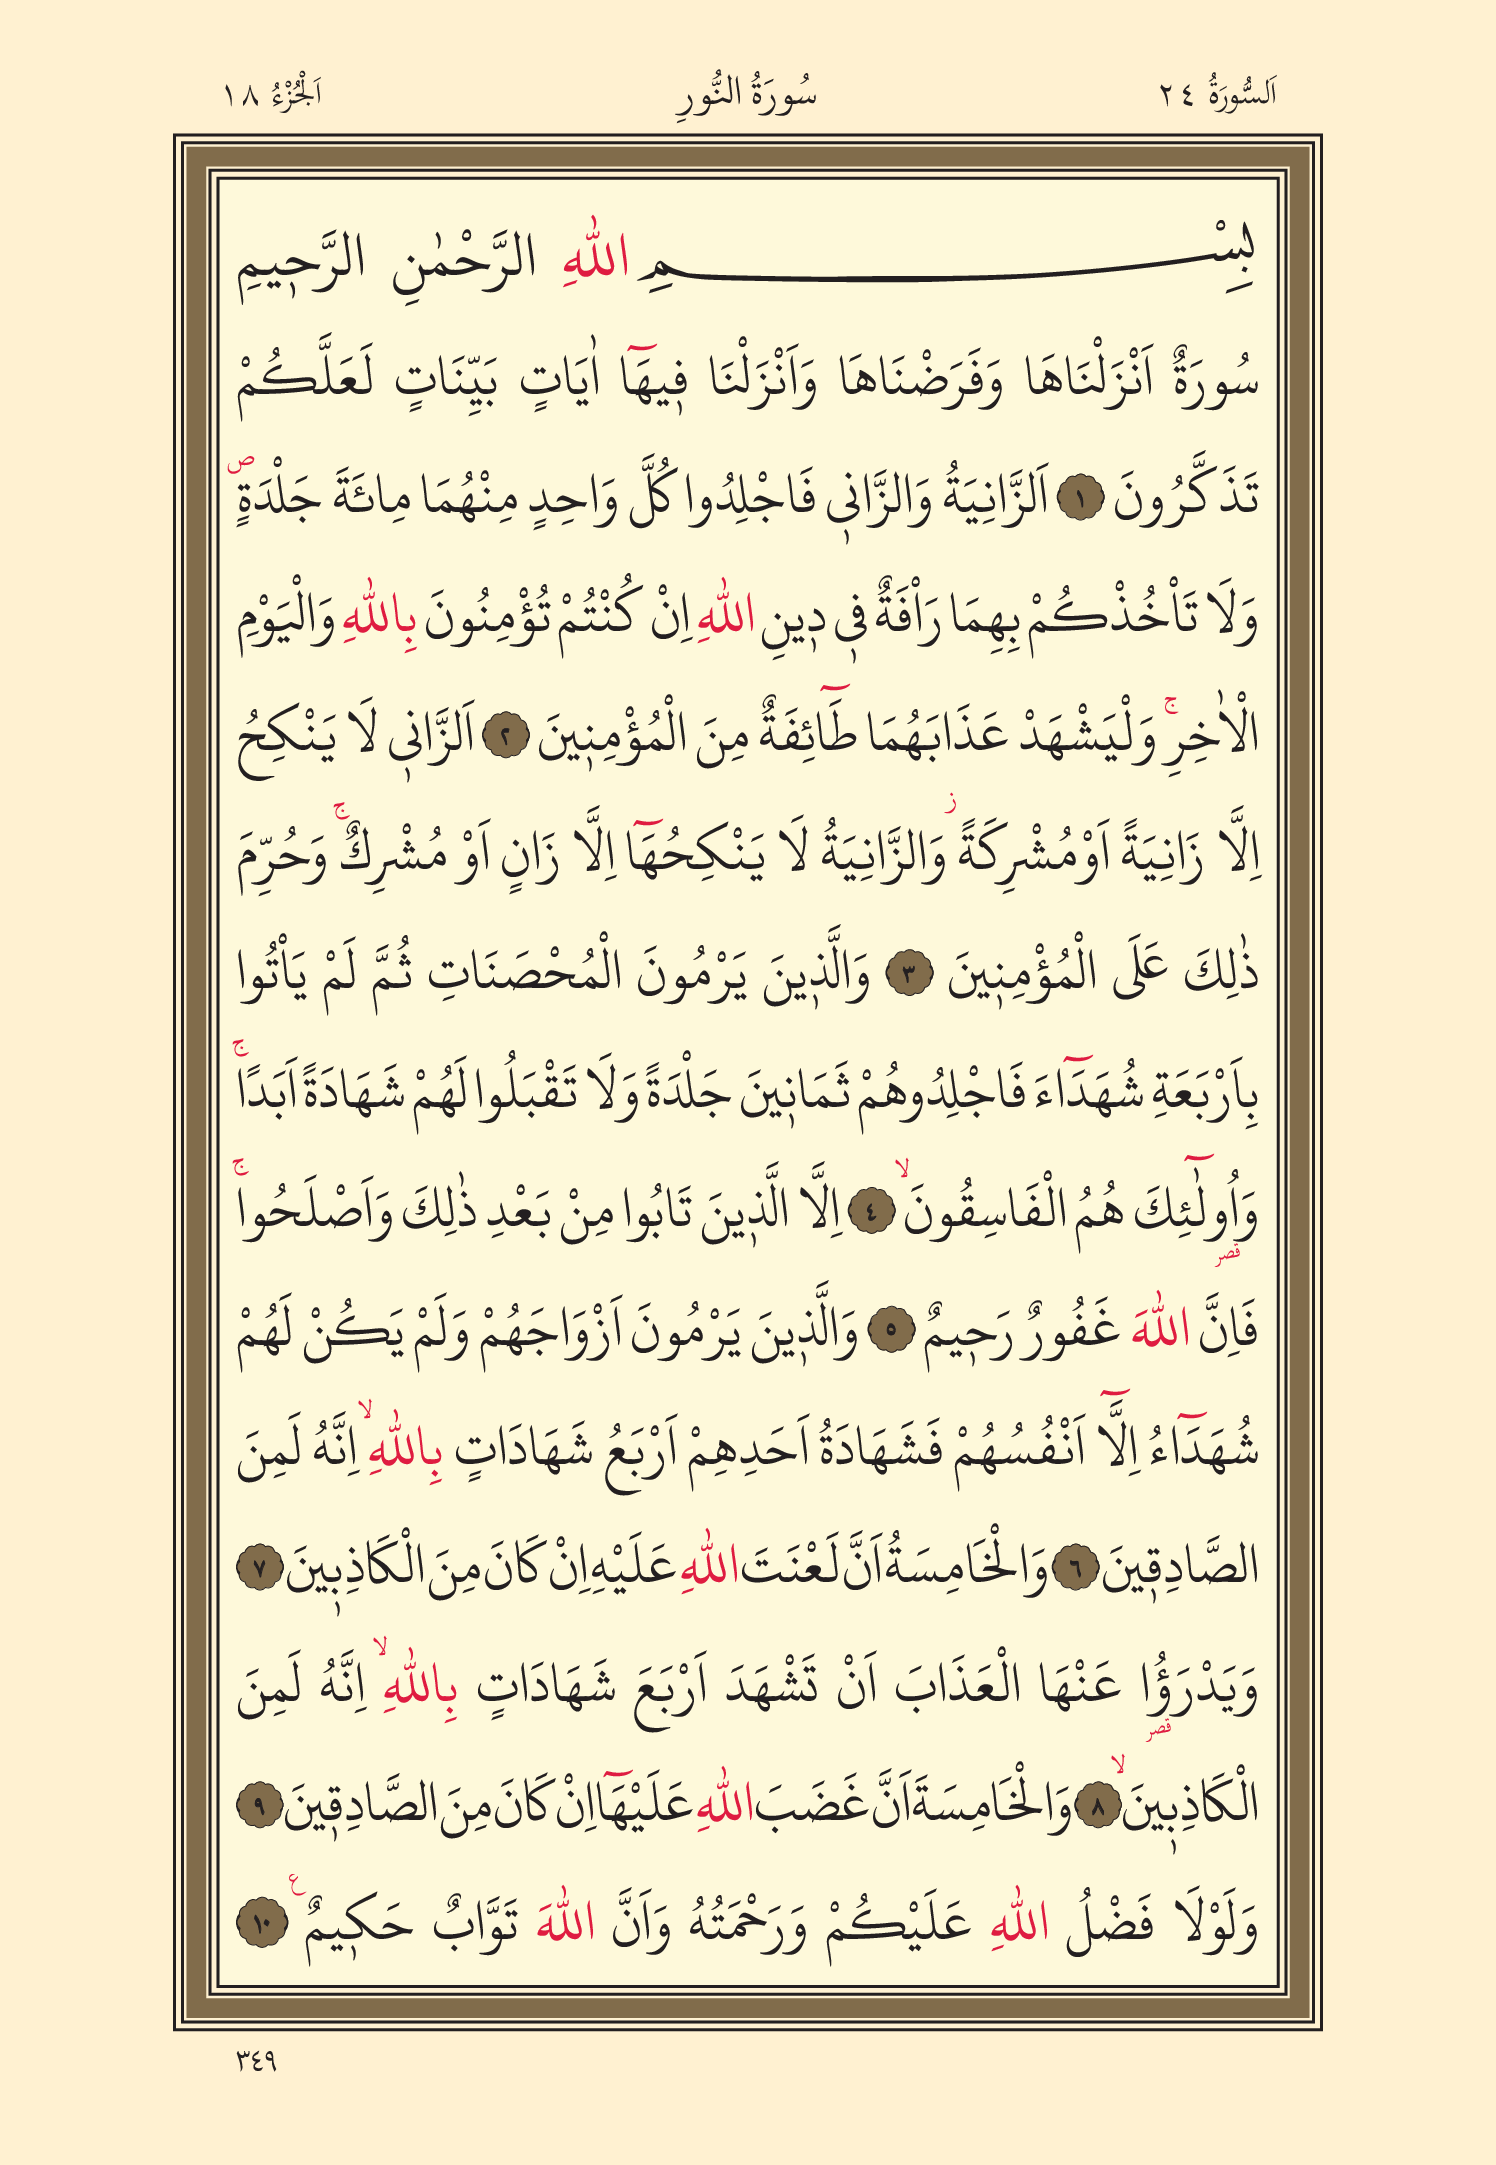 اَلسُّورَةُ ٢٤ سُورَةُ النُّورِ اَلْجُزْءُ ١٨
بِسْمِ اللّٰهِ الرَّحْمٰنِ الرَّح۪يمِ
سُورَةٌ اَنْزَلْنَاهَا وَفَرَضْنَاهَا وَاَنْزَلْنَا ف۪يهَٓا اٰيَاتٍ بَيِّنَاتٍ لَعَلَّكُمْ
تَذَكَّرُونَ ١ اَلزَّانِيَةُ وَالزَّان۪ي فَاجْلِدُوا كُلَّ وَاحِدٍ مِنْهُمَا مِائَةَ جَلْدَةٍۖ
وَلَا تَأْخُذْكُمْ بِهِمَا رَاْفَةٌ ف۪ي د۪ينِ اللّٰهِ اِنْ كُنْتُمْ تُؤْمِنُونَ بِاللّٰهِ وَالْيَوْمِ
الْاٰخِرِۚ وَلْيَشْهَدْ عَذَابَهُمَا طَٓائِفَةٌ مِنَ الْمُؤْمِن۪ينَ ٢ اَلزَّان۪ي لَا يَنْكِحُ
اِلَّا زَانِيَةً اَوْ مُشْرِكَةًؗ وَالزَّانِيَةُ لَا يَنْكِحُهَٓا اِلَّا زَانٍ اَوْ مُشْرِكٌۚ وَحُرِّمَ
ذٰلِكَ عَلَى الْمُؤْمِن۪ينَ ٣ وَالَّذ۪ينَ يَرْمُونَ الْمُحْصَنَاتِ ثُمَّ لَمْ يَأْتُوا
بِاَرْبَعَةِ شُهَدَٓاءَ فَاجْلِدُوهُمْ ثَمَان۪ينَ جَلْدَةً وَلَا تَقْبَلُوا لَهُمْ شَهَادَةً اَبَدًاۚ
وَاُو۬لٰٓئِكَ هُمُ الْفَاسِقُونَۙ ٤ اِلَّا الَّذ۪ينَ تَابُوا مِنْ بَعْدِ ذٰلِكَ وَاَصْلَحُواۚ
قصر
فَاِنَّ اللّٰهَ غَفُورٌ رَح۪يمٌ ٥ وَالَّذ۪ينَ يَرْمُونَ اَزْوَاجَهُمْ وَلَمْ يَكُنْ لَهُمْ
شُهَدَٓاءُ اِلَّٓا اَنْفُسُهُمْ فَشَهَادَةُ اَحَدِهِمْ اَرْبَعُ شَهَادَاتٍ بِاللّٰهِۙ اِنَّهُ لَمِنَ
الصَّادِق۪ينَ ٦ وَالْخَامِسَةُ اَنَّ لَعْنَتَ اللّٰهِ عَلَيْهِ اِنْ كَانَ مِنَ الْكَاذِب۪ينَ ٧
وَيَدْرَؤُا عَنْهَا الْعَذَابَ اَنْ تَشْهَدَ اَرْبَعَ شَهَادَاتٍ بِاللّٰهِۙ اِنَّهُ لَمِنَ
قصر
الْكَاذِب۪ينَۙ ٨ وَالْخَامِسَةَ اَنَّ غَضَبَ اللّٰهِ عَلَيْهَٓا اِنْ كَانَ مِنَ الصَّادِق۪ينَ ٩
وَلَوْلَا فَضْلُ اللّٰهِ عَلَيْكُمْ وَرَحْمَتُهُ وَاَنَّ اللّٰهَ تَوَّابٌ حَك۪يمٌ ع ١٠
٣٤٩